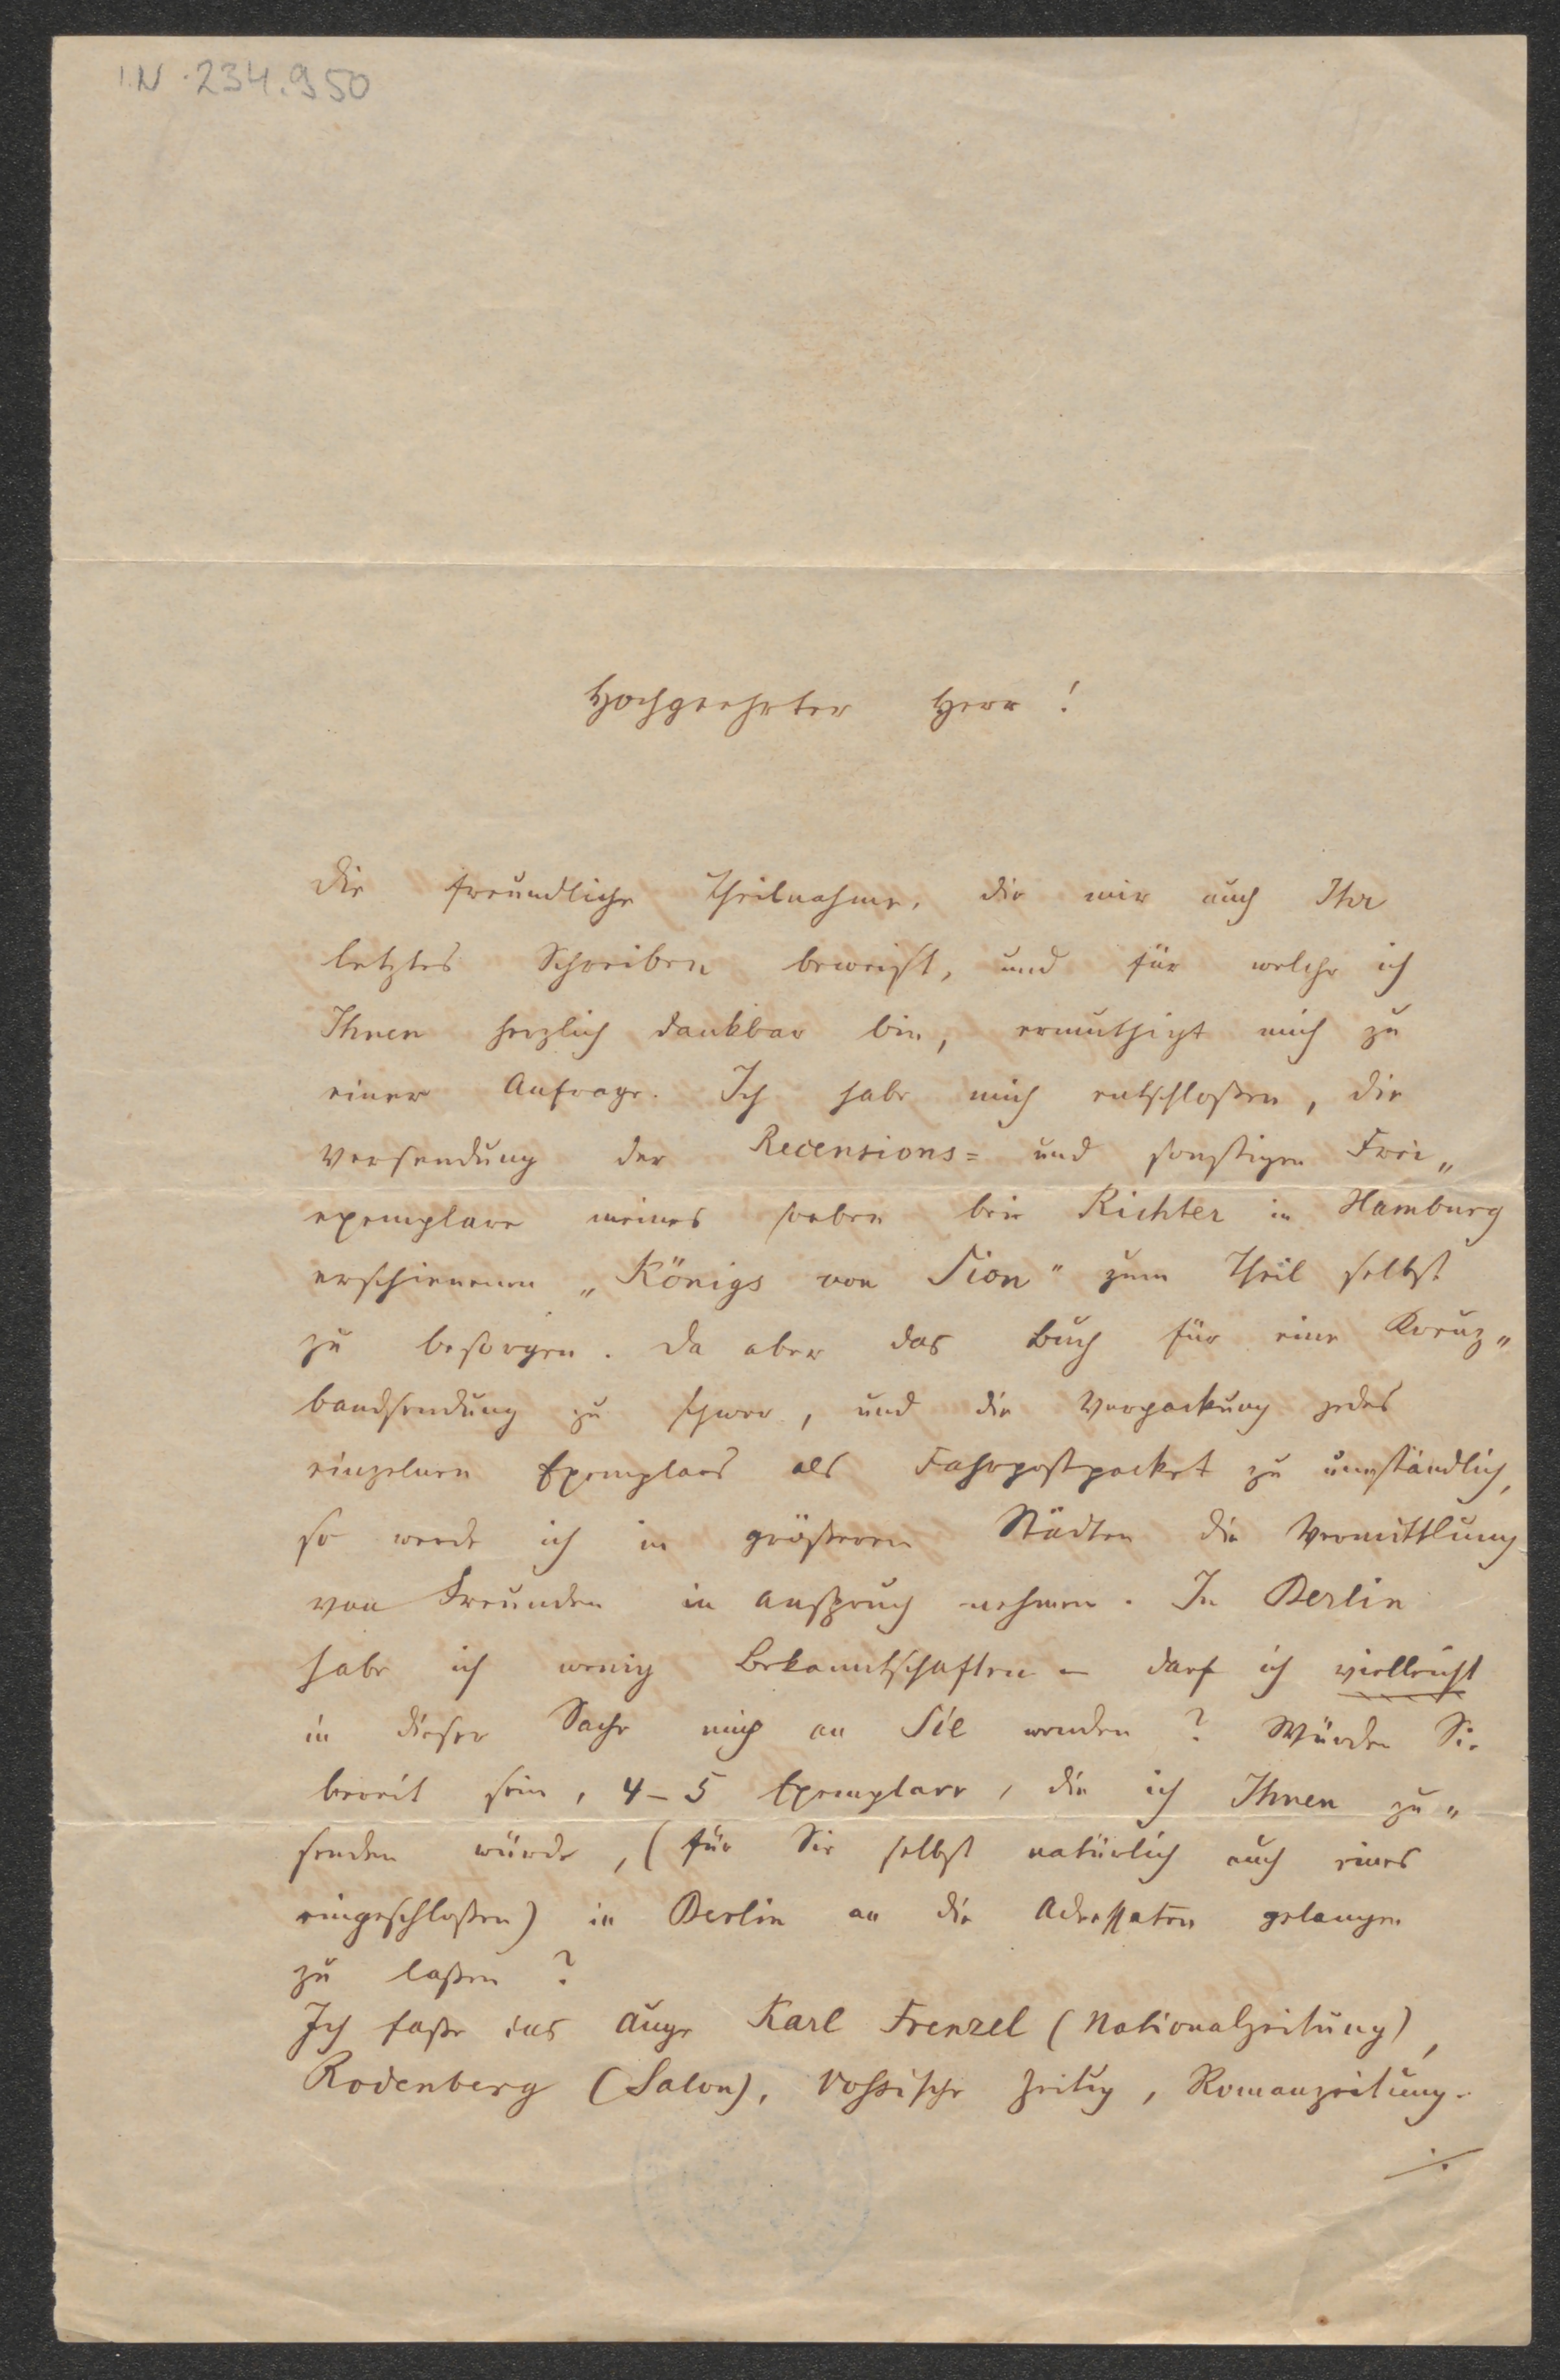 I.N. 234.950
Hochgeehrter Herr!
Die freundliche Theilnahme, die mir auch Ihr
letztes Schreiben beweist, und für welche ich
Ihnen herzlich dankbar bin, ermuthigt mich zu
einer Anfrage. Ich habe mich entschloßen, die
Versendung der Recensions= und sonstigen Frei„
exemplare meines soeben bei Richter in Hamburg
erschienenen „Königs von Sion“ zum Theil selbst
zu besorgen. Da aber das Buch für eine Kreuz„
bandsendung zu schwer, und die Verpackung jedes
einzelnen Exemplars als Fahrpostpacket zu umständlich,
so werde ich in größeren Städten die Vermittlung
von Freunden in Anspruch nehmen. In Berlin
habe ich wenig Bekanntschaften – darf ich vielleicht
in dieser Sache mich an Sie wenden? Würden Sie
bereit sein, 4–5 Exemplare, die ich Ihnen zu„
senden würde, (für Sie selbst natürlich auch eines
eingeschloßen) in Berlin an die Adressaten gelangen
zu laßen?
Ich faße ins Auge Karl Frenzel (Nationalzeitung),
Rodenberg (Salon), Vossische Zeitg, Romanzeitung.
./.